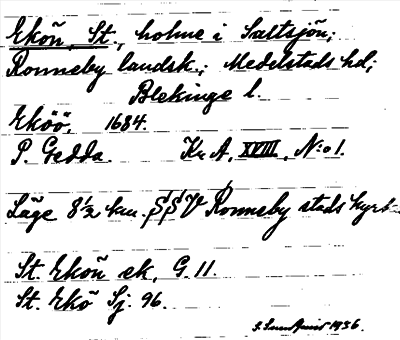 Ekön, St., holme i Saltsjön;
Ronneby landsk.; Medelstads hd;
Blekinge l.
Eköö, 1684.
P. Gedda. Kr. A, XVIII, N:o 1.
Läge 8 1/2 km. S S V Ronneby stads kyrk
St. Ekön ek, G. 11.
St. Ekö Sj. 96.
1936.